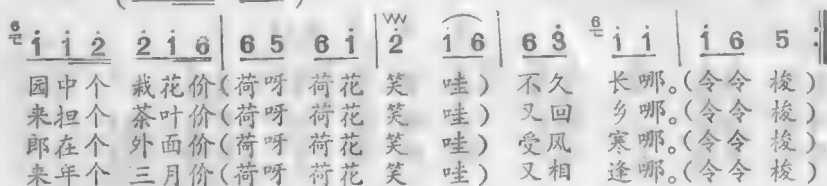 6 1 1 2 2 1 6 | 6 5 6 1 | 2 1 6 6 3 6 1 1 | 1 6 5 :‖
园中个 栽花价(荷呀 荷花 笑 哇) 不久 长哪。(令令 梭)
来担个 茶叶价(荷呀 荷花 笑 哇) 又回 乡哪。(令令 梭)
郎在个 外面价(荷呀 荷花 笑 哇) 受风 寒哪。(令令 梭)
来年个 三月价(荷呀 荷花 笑 哇) 又相 逢哪。(令令 梭)